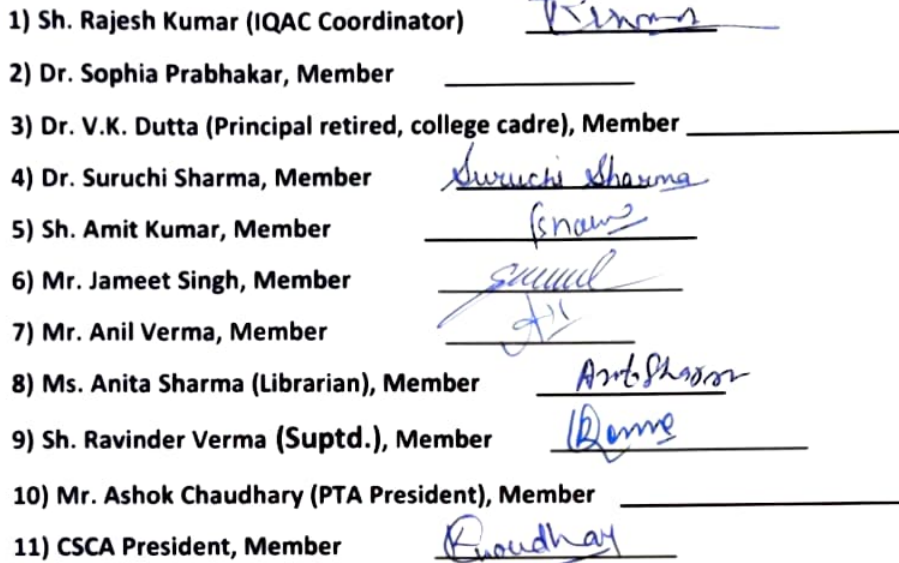 1) Sh. Rajesh Kumar (IQAC Coordinator)
2) Dr. Sophia Prabhakar, Member
3) Dr. V.K. Dutta (Principal retired, college cadre), Member
4) Dr. Suruchi Sharma, Member Suruchi Sharma
5) Sh. Amit Kumar, Member
6) Mr. Jameet Singh, Member
7) Mr. Anil Verma, Member
8) Ms. Anita Sharma (Librarian), Member
9) Sh. Ravinder Verma (Suptd.), Member
10) Mr. Ashok Chaudhary (PTA President), Member
11) CSCA President, Member